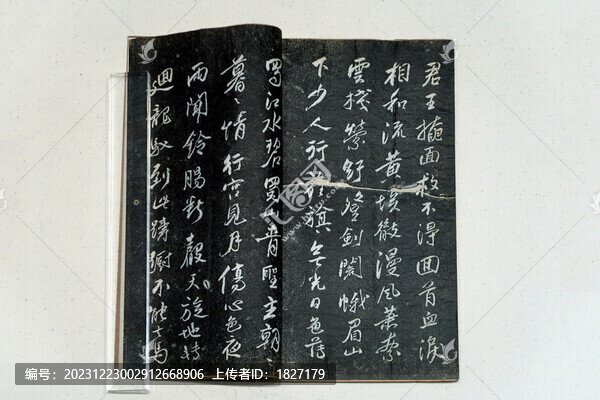 君王掩面救不得回首血淚
相和流黃埃散漫風蕭索
雲棧縈紆登劍閣峨眉山
下少人行旌旗無光日色薄
蜀江水碧蜀山青聖主朝〻
暮〻情行宮見月傷心色夜
雨聞鈴腸斷聲天旋地轉
迴龍馭到此躊躇不能去馬
编号：20231223002912668906 上传者ID：1827179